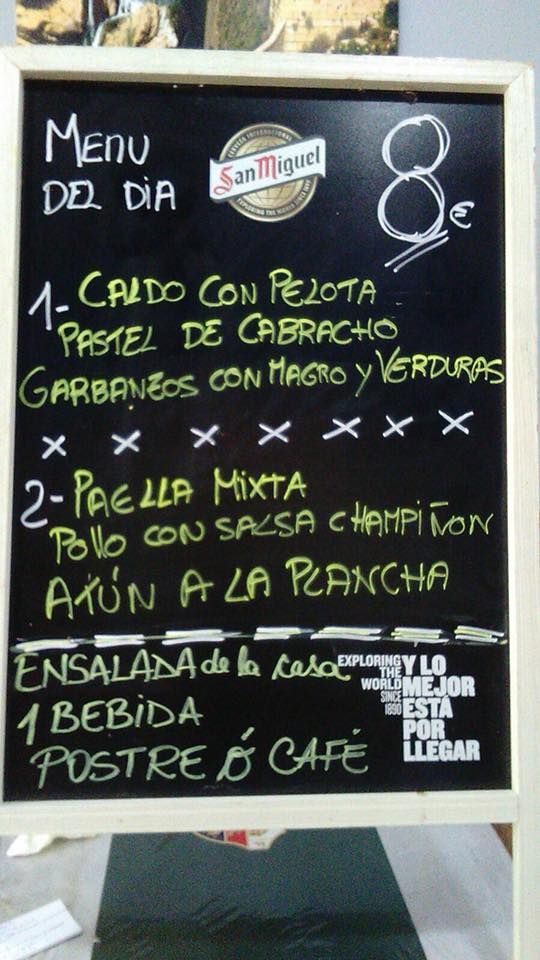 MENU
DEL DIA
CERVEZA INTERNACIONAL
San Miguel
EXPLORING THE WORLD
8€
1- CALDO CON PELOTA
PASTEL DE CABRACHO
GARBANZOS CON MAGRO y VERDURAS
x x x x x x x
2- PAELLA MIXTA
Pollo CON SALSA CHAMPIÑON
ATÚN A LA PLANCHA
ENSALADA de la casa
1 BEBIDA
POSTRE Ó CAFÉ
EXPLORING
THE
WORLD
SINCE
1890
Y LO
MEJOR
ESTÁ
POR
LLEGAR